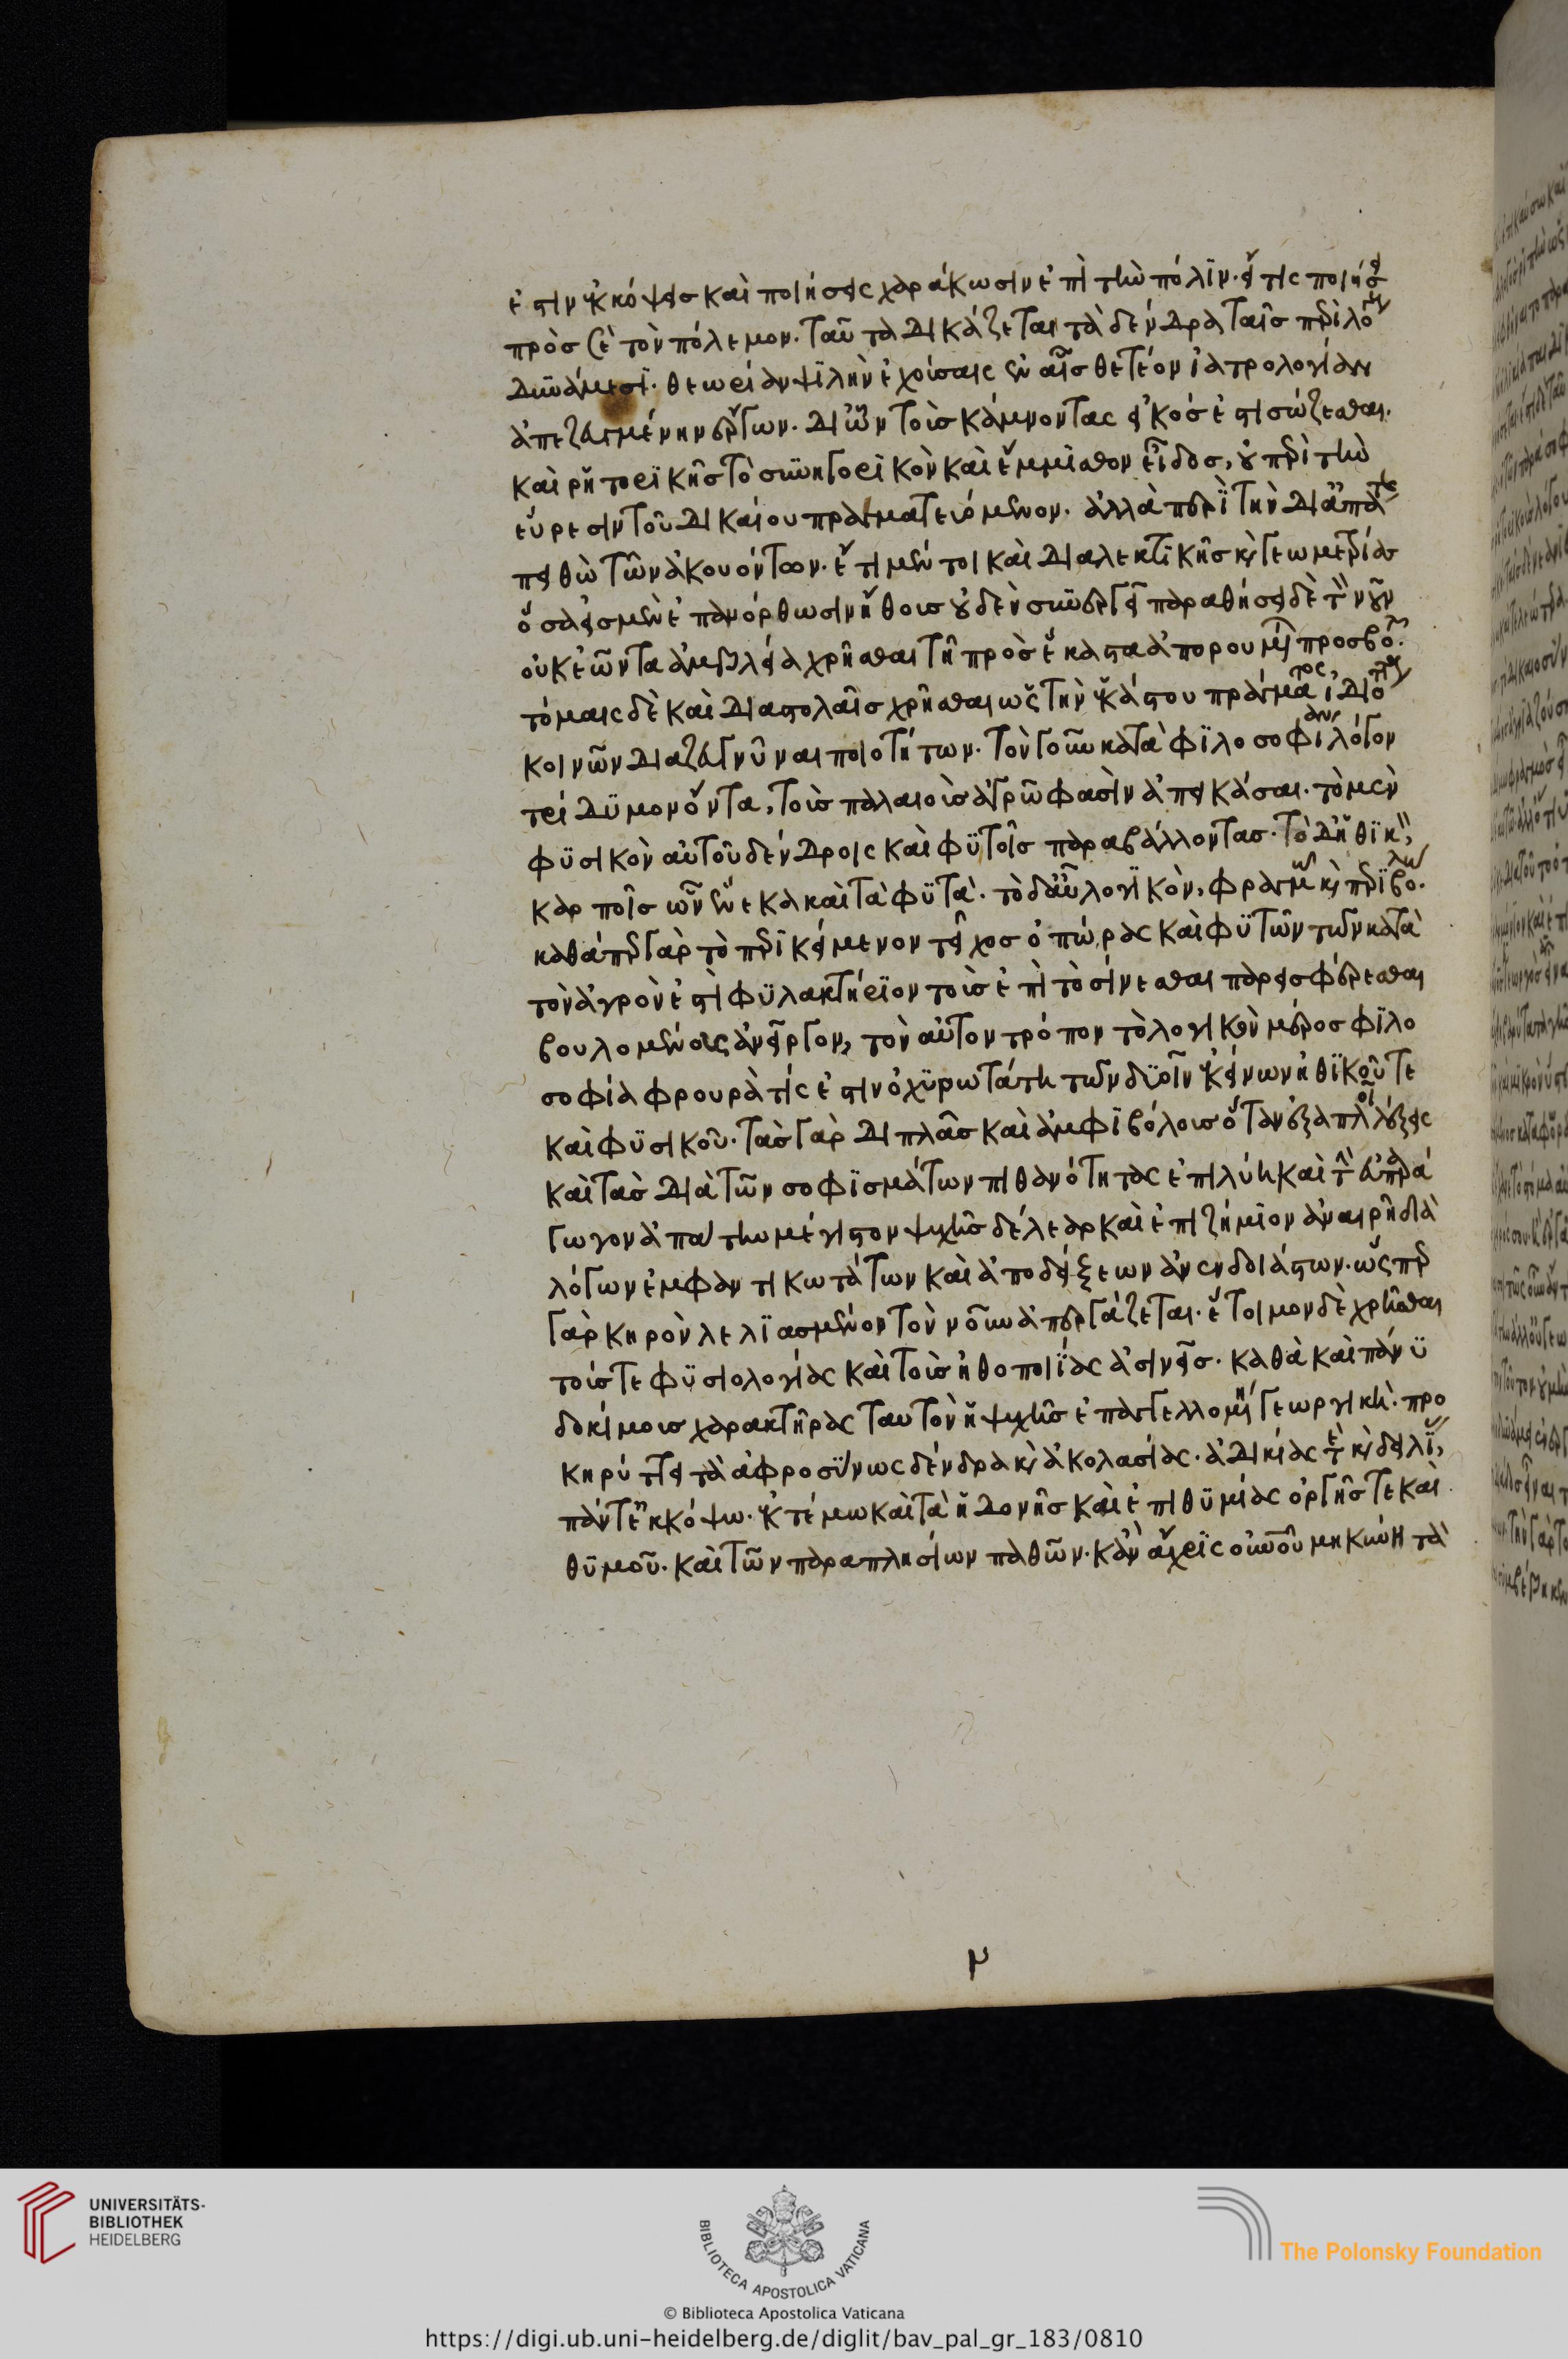 ἐστιν ἐκκόψεις καὶ ποιήσεις χαράκωσιν ἐπὶ τὴν πόλιν. ἥτις ποιήσει
πρὸς σὲ τὸν πόλεμον. ταῦτα δικάζεται τὰ δένδρα ταῖς περὶ λόγων
δυνάμεσι. θεωρίαν ψιλὴν ἐχούσαις ἐν αἷς θετέον ἰατρολογίαν
ἀπεζευγμένην ἔργων. δι ὧν τοὺς κάμνοντας εἰκός ἐστι σώζεσθαι.
καὶ ῥητορικῆς τὸ συνηγορικὸν καὶ ἔμμισθον εἶδος, οὐ περὶ τὴν
εὕρεσιν τοῦ δικαίου πραγματευόμενον. ἀλλὰ περὶ τὴν δι ἀπάτης
πειθὼ τῶν ἀκουόντων. ἔτι μέντοι καὶ διαλεκτικῆς καὶ γεωμετρίας
ὅσα εἰς μὲν ἐπανόρθωσιν ἤθους οὐδὲν συνεργεῖ παραθήσει δὲ τὸν νοῦν
οὐκ ἐῶντα ἀμβλεία χρῆσθαι τῆ πρὸς ἕκαστα ἀπορουμένη προσβολῆ.
τόμαις δὲ καὶ διαστολαῖς χρῆσθαι ὡς τὴν ἑκάστου πράγματος ἰδιότητα
κοινῶν διαζευγνῦναι ποιοτήτων. τὸν γοῦν κατὰ φιλοσοφίαν λόγον
τρίδυμον ὄντα, τοὺς παλαιοὺς ἀγρῶ φασὶν ἀπεικάσαι. τὸ μὲν
φυσικὸν αὐτοῦ δένδροις καὶ φυτοῖς παραβάλλοντας. τὸ δ ἠθικὸν,
καρποῖς ὧν ἕνεκα καὶ τὰ φυτὰ. τὸ δ αὖ λογικὸν, φραγμῶ καὶ περιβόλω.
καθάπερ γὰρ τὸ περικείμενον τεῖχος ὀπώρας καὶ φυτῶν τῶν κατὰ
τὸν ἀγρὸν ἐστὶ φυλακτήριον τοὺς ἐπὶ τὸ σίνεσθαι παρεισφέρεσθαι
βουλομένους ἀνεῖργον, τὸν αὐτον τρόπον τὸ λογικὸν μέρος φιλο
σοφία φρουρὰ τίς ἐστιν ὀχυρωτάτη τῶν δυοῖν ἐκείνων ἠθικοῦ τε
καὶ φυσικοῦ. τὰς γὰρ διπλᾶς καὶ ἀμφιβόλους ὅταν ἐξαπλοῖ λέξεις
καὶ τὰς διὰ τῶν σοφισμάτων πιθανότητας ἐπιλύη καὶ τὴν εὐπαρά
γωγον ἀπάτην μέγιστον ψυχῆς δέλεαρ καὶ ἐπιζήμιον ἀναιρῆ διὰ
λόγων ἐμφαντικωτάτων καὶ ἀποδείξεων ἀνενδοιάστων. ὥσπερ
γὰρ κηρὸν λελιασμένον τὸν νοῦν ἀπεργάζεται. ἕτοιμον δὲ χρῆσθαι
τούς τε φυσιολογίας καὶ τοὺς ἠθοποιίας ἀσινεῖς. καθὰ καὶ πάνυ
δοκίμους χαρακτῆρας ταυτὸν ἡ ψυχῆς ἐπαγγελλομένη γεωργικὴ. προ
κηρύττει τὰ ἀφροσύνης δένδρα καὶ ἀκολασίας. ἀδικίας τε καὶ δειλίας,
πάντ ἐκκόψω. ἐκτέμω καὶ τὰ ἡδονῆς καὶ ἐπιθυμίας ὀργῆς τε καὶ
θυμοῦ. καὶ τῶν παραπλησίων παθῶν. κἂν ἄχρις οὐνοῦ μηκύνη τὰ
μ
UNIVERSITÄTS-
BIBLIOTHEK
HEIDELBERG
BIBLIOTECA APOSTOLICA VATICANA
The Polonsky Foundation
© Biblioteca Apostolica Vaticana
https://digi.ub.uni-heidelberg.de/diglit/bav_pal_gr_183/0810